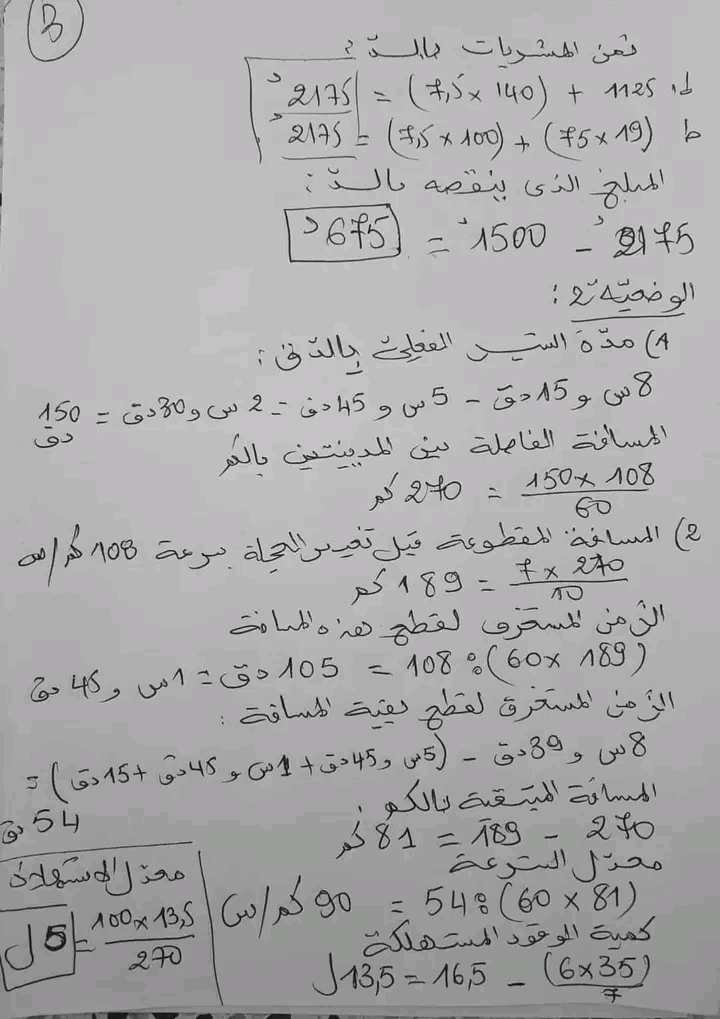 3
ثمن المشتريات بالدّ :
ط1 1125 + (140 × 7,5) = 2175 د
ط (19 × 75) + (100 × 7,5) = 2175 د
المبلغ الذي ينقصه بالدّ :
2175 د - 1500 د = 675 د
الوضعيّة 2 :
1) مدّة السّير الفعليّ بالدّق :
8س و15دق - 5س و45دق = 2س و30دق = 150 دق
المسافة الفاصلة بين المدينتين بالكم
108 × 150 / 60 = 270 كم
2) المسافة المقطوعة قبل تغيير العجلة بسرعة 108 كم/س
270 × 7 / 10 = 189 كم
الزّمن المستغرق لقطع هذه المسافة
(189 × 60) : 108 = 105 دق = 1س و45 دق
الزّمن المستغرق لقطع بقية المسافة :
8س و39دق - (5س و45دق + 1س و45دق + 15دق) =
54 دق
المسافة المتبقية بالكم :
270 - 189 = 81 كم
معدّل السّرعة
(81 × 60) : 54 = 90 كم/س
كمية الوقود المستهلكة
(35 × 6) / 7 - 16,5 = 13,5 ل
معدّل الاستهلاك
13,5 × 100 / 270 = 5 ل